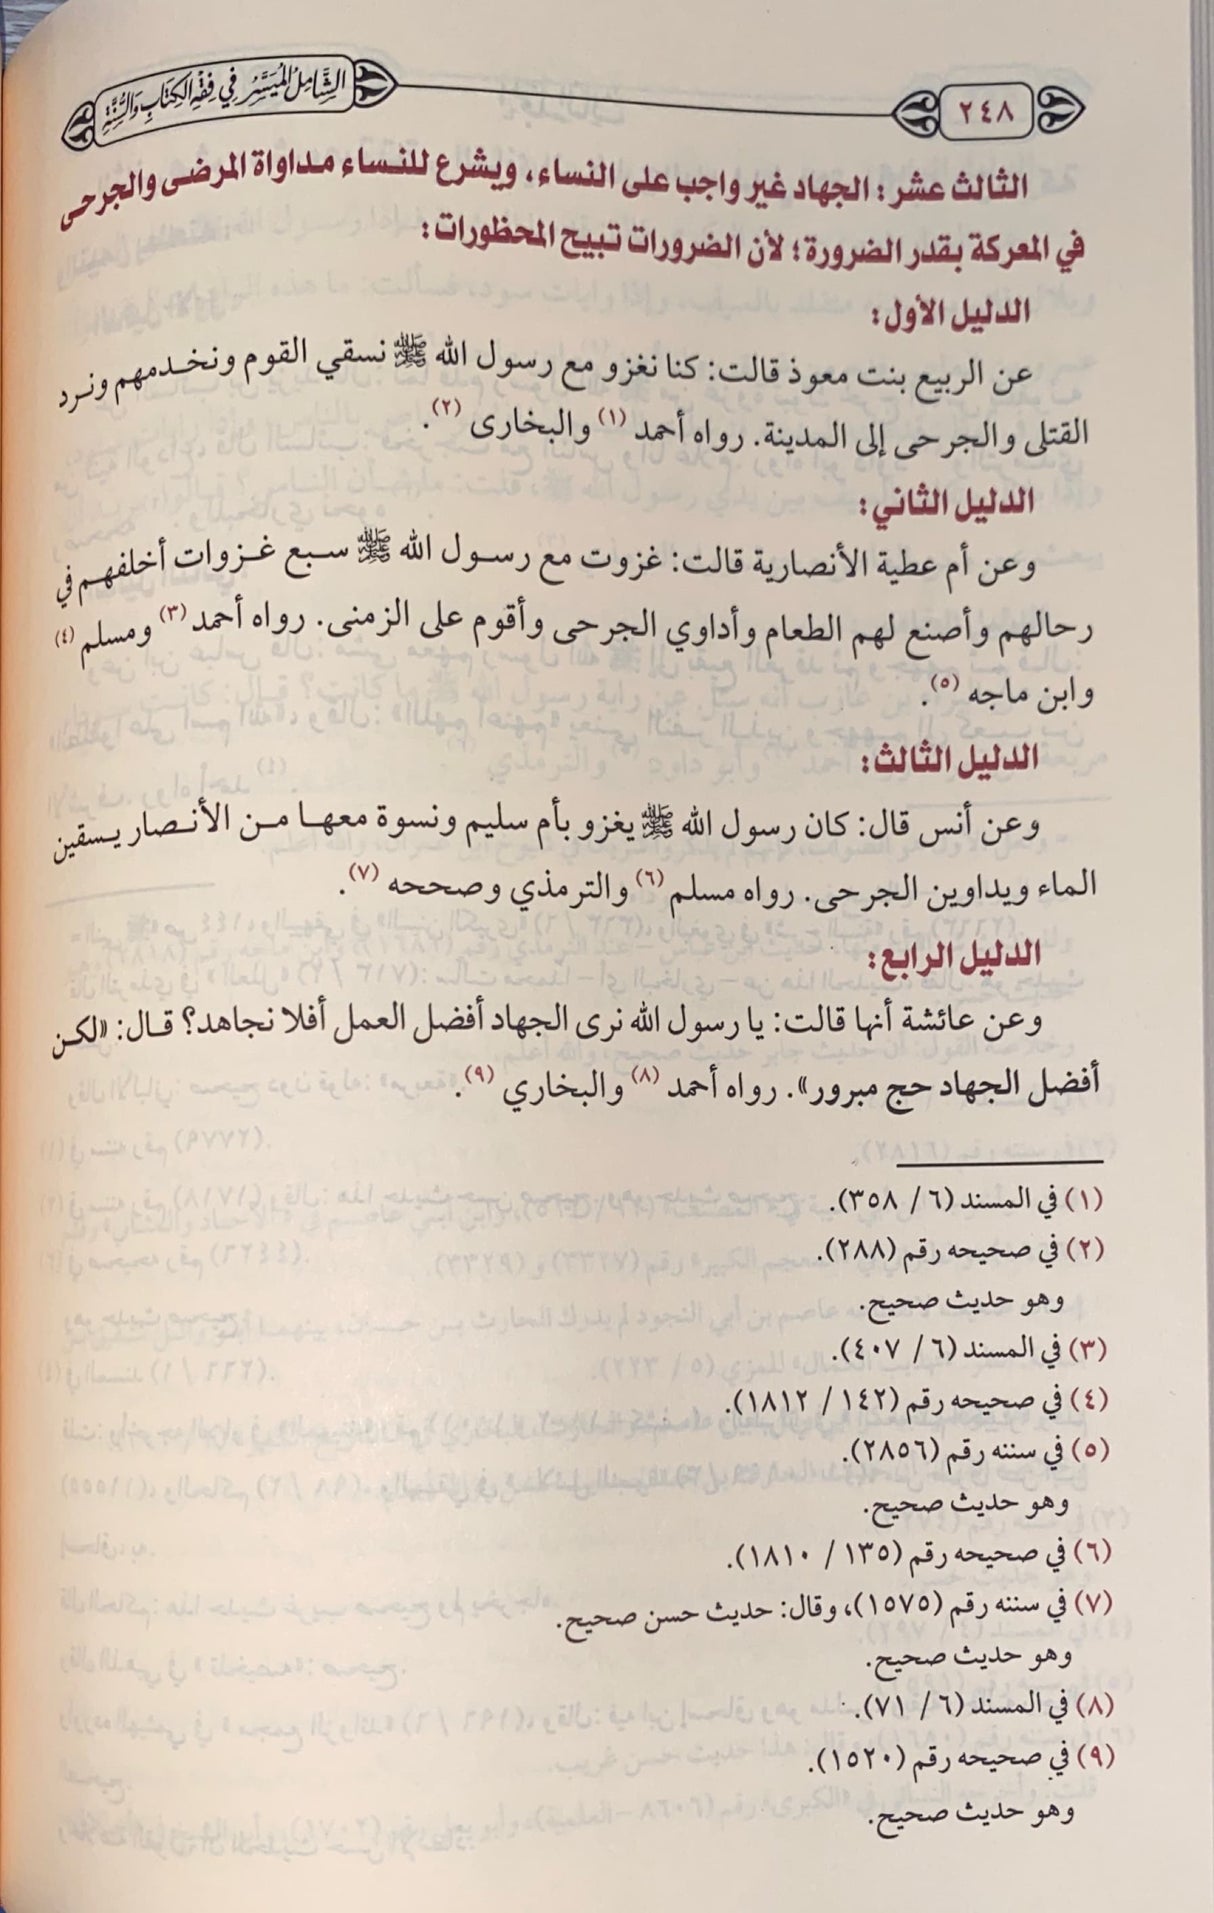 ٢٤٨
الشَّامِلُ المُيَسَّرُ فِي فِقْهِ الكِتَابِ وَالسُّنَّةِ
الثالث عشر: الجهاد غير واجب على النساء، ويشرع للنساء مداواة المرضى والجرحى
في المعركة بقدر الضرورة؛ لأن الضرورات تبيح المحظورات:
الدليل الأول:
عن الربيع بنت معوذ قالت: كنا نغزو مع رسول الله ﷺ نسقي القوم ونخدمهم ونرد
القتلى والجرحى إلى المدينة. رواه أحمد (١) والبخارى (٢).
الدليل الثاني:
وعن أم عطية الأنصارية قالت: غزوت مع رسول الله ﷺ سبع غزوات أخلفهم في
رحالهم وأصنع لهم الطعام وأداوي الجرحى وأقوم على الزمنى. رواه أحمد (٣) ومسلم (٤)
وابن ماجه (٥).
الدليل الثالث:
وعن أنس قال: كان رسول الله ﷺ يغزو بأم سليم ونسوة معها من الأنصار يسقين
الماء ويداوين الجرحى. رواه مسلم (٦) والترمذي وصححه (٧).
الدليل الرابع:
وعن عائشة أنها قالت: يا رسول الله نرى الجهاد أفضل العمل أفلا نجاهد؟ قال: «لكن
أفضل الجهاد حج مبرور». رواه أحمد (٨) والبخاري (٩).
(١) في المسند (٦/ ٣٥٨).
(٢) في صحيحه رقم (٢٨٨).
وهو حديث صحيح.
(٣) في المسند (٦/ ٤٠٧).
(٤) في صحيحه رقم (١٤٢/ ١٨١٢).
(٥) في سننه رقم (٢٨٥٦).
وهو حديث صحيح.
(٦) في صحيحه رقم (١٣٥/ ١٨١٠).
(٧) في سننه رقم (١٥٧٥)، وقال: حديث حسن صحيح.
وهو حديث صحيح.
(٨) في المسند (٦/ ٧١).
(٩) في صحيحه رقم (١٥٢٠).
وهو حديث صحيح.